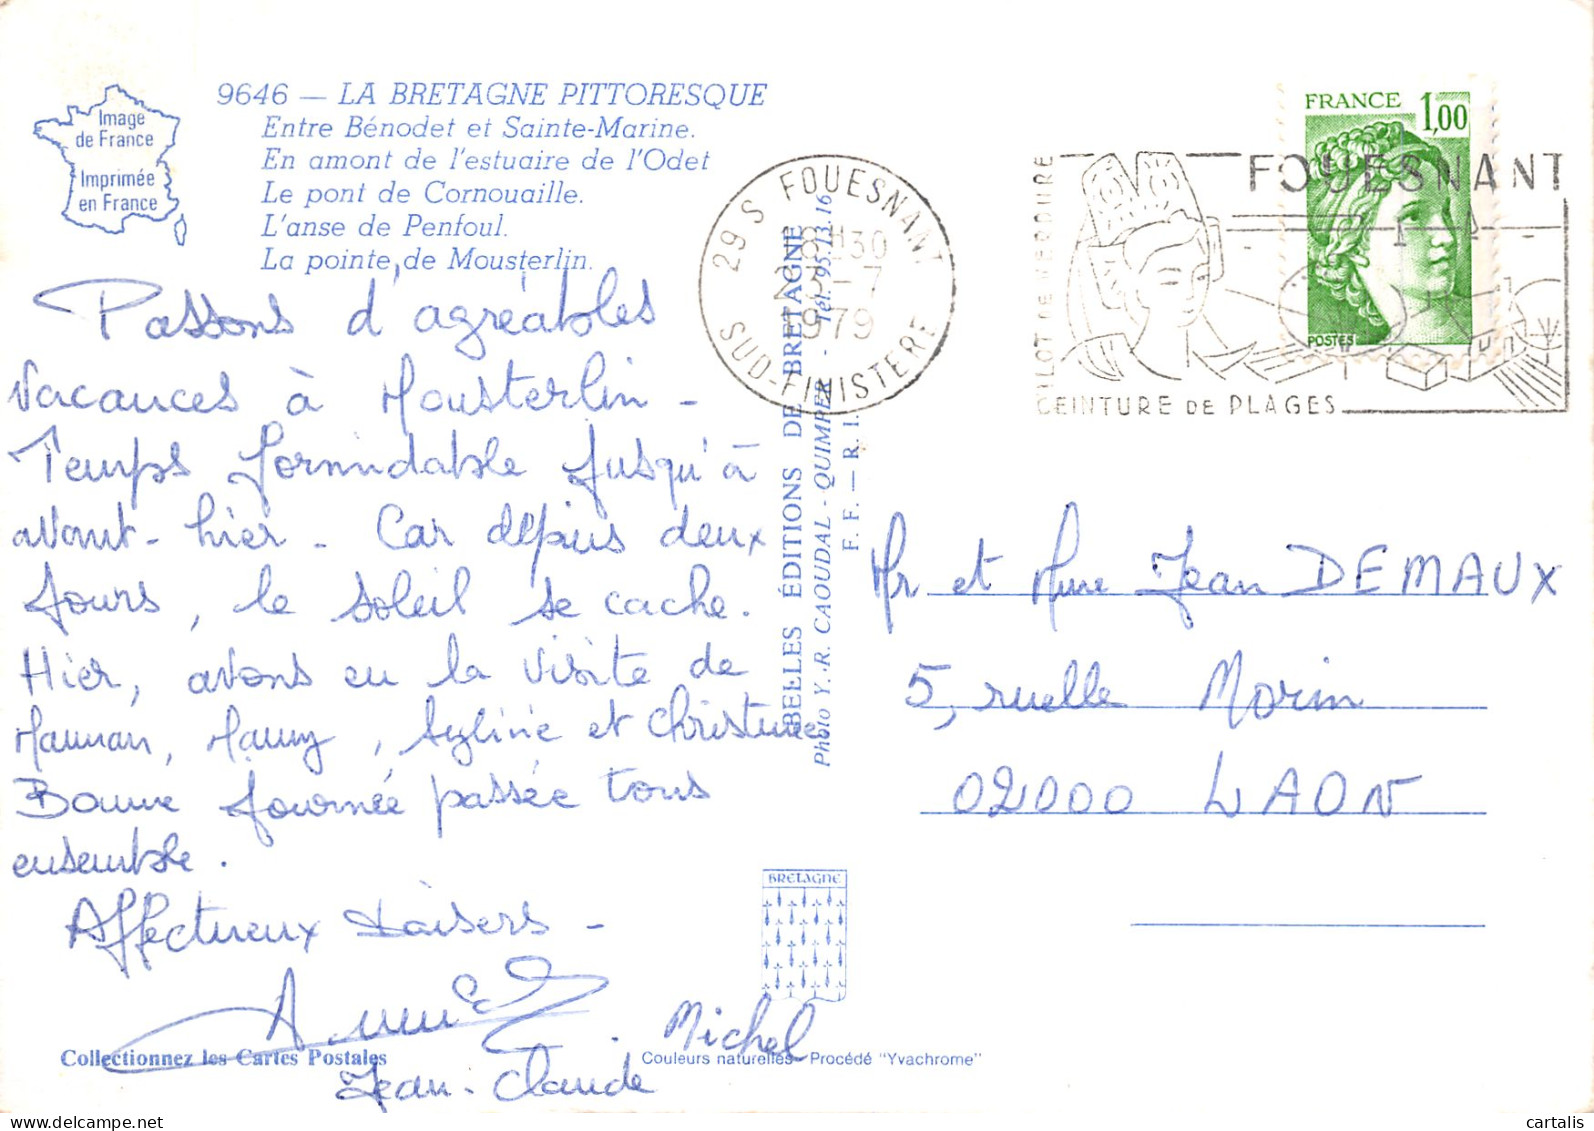 9646 — LA BRETAGNE PITTORESQUE
Entre Bénodet et Sainte-Marine.
En amont de l'estuaire de l'Odet
Le pont de Cornouaille.
L'anse de Penfoul.
La pointe de Mousterlin.
Image
de France
Imprimée
en France
Passons d'agréables
vacances à Mousterlin -
Temps formidable jusqu'à
avant-hier - Car depuis deux
jours, le soleil se cache.
Hier, avons eu la visite de
Maman, Mamy, et Christine
Bonne journée passée tous
ensemble.
Affectueux baisers -
Michel
Jean-Claude
Collectionnez les Cartes Postales
Couleurs naturelles - Procédé "Yvachrome"
BRETAGNE
BELLES ÉDITIONS DE BRETAGNE
Photo Y.-R. CAOUDAL - QUIMPER - Tél. 95.13.16
F. F. — R. I.
29 S FOUESNANT
18H30
-7
1979
SUD-FINISTERE
FOUESNANT
PILOT DE VERDURE
CEINTURE DE PLAGES
FRANCE 1,00
POSTES
Mr et Mme Jean DEMAUX
5, ruelle Morin
02000 LAON
cartalis